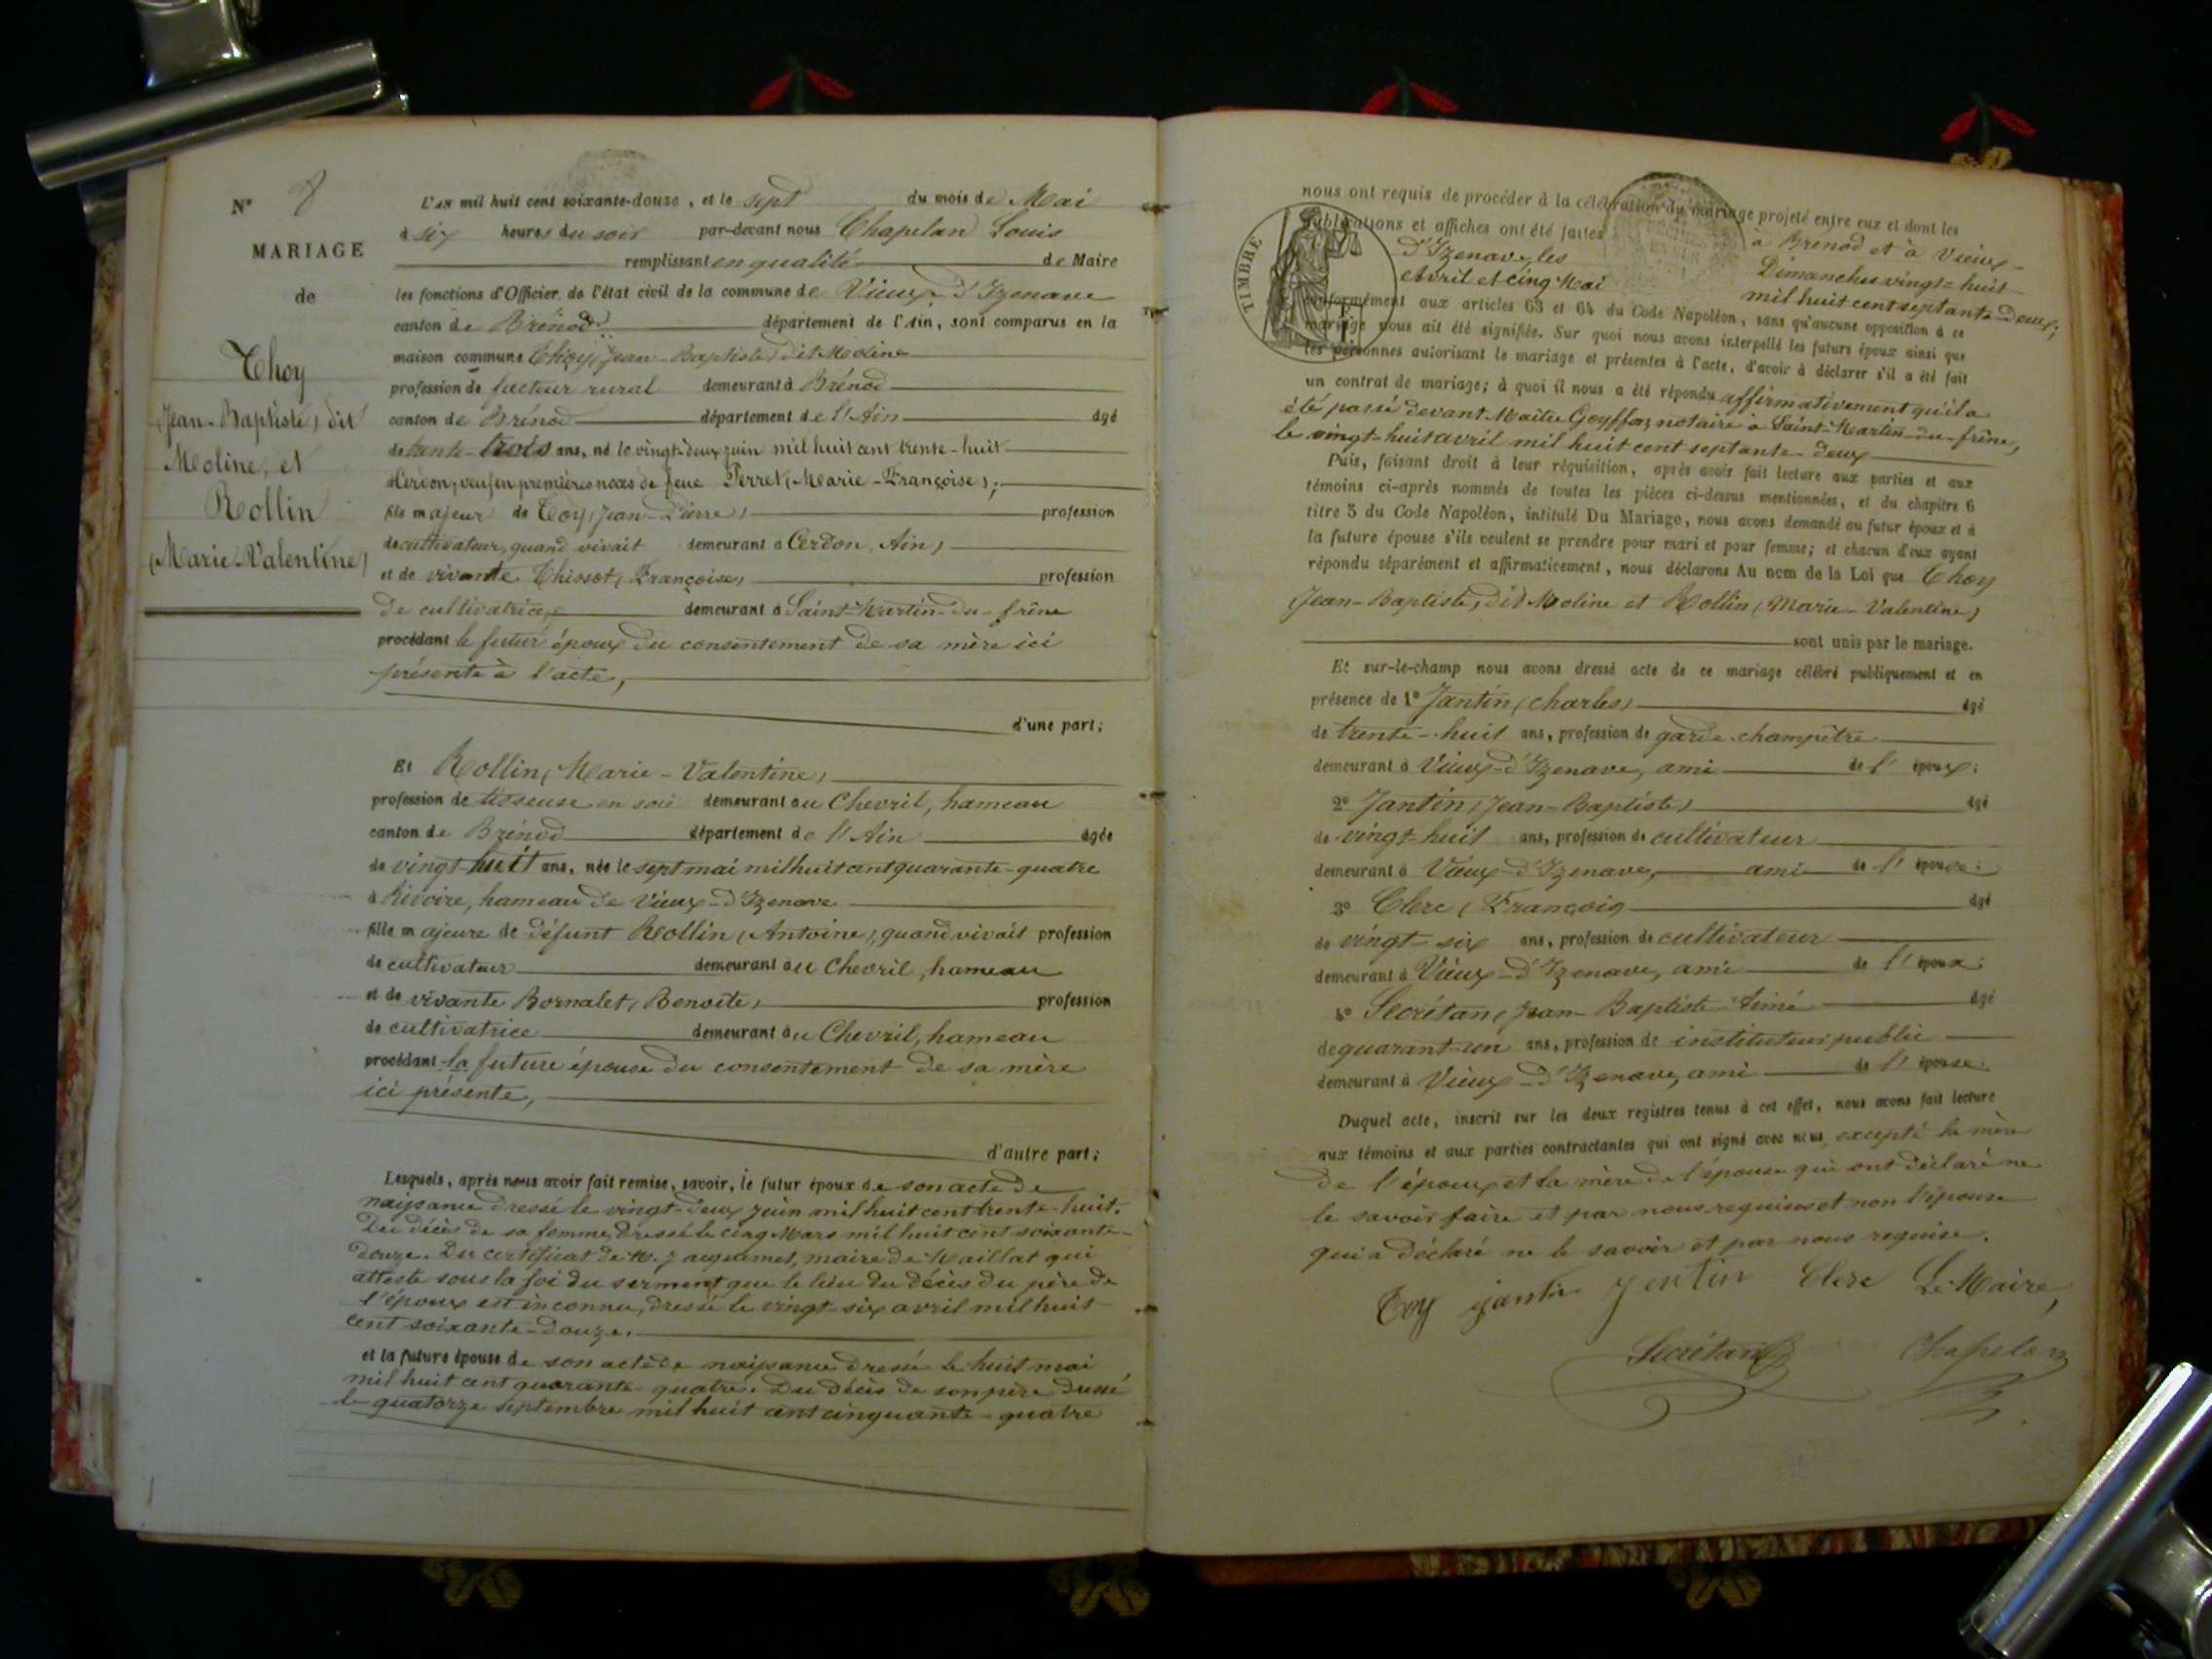 N° 8
MARIAGE
de
Thoy
(Jean-Baptiste) dit
Moline, et
Rollin
(Marie-Valentine)
L'AN mil huit cent soixante-douze, et le sept du mois de Mai
à six heures du soir par-devant nous Chapelan Louis
remplissant en qualité de Maire
les fonctions d'Officier de l'état civil de la commune de Vieux-d'Izenave
canton de Brénod département de l'Ain, sont comparus en la
maison commune Thoy (Jean-Baptiste) dit Moline
profession de facteur rural demeurant à Brénod
canton de Brénod département de l'Ain âgé
de trente-trois ans, né le vingt-deux juin mil huit cent trente-huit
à Cerdon, veuf en premières noces de feue Perret (Marie-Françoise);
fils majeur de Toy (Jean-Pierre) profession
de cultivateur, quand vivait demeurant à Cerdon, (Ain)
et de vivante Thissot (Françoise) profession
de cultivatrice, demeurant à Saint-Martin-du-frêne
procédant le futur époux du consentement de sa mère ici
présente à l'acte,
d'une part;
Et Rollin (Marie-Valentine)
profession de tisseuse en soie demeurant au Chevril, hameau
canton de Brénod département de l'Ain âgée
de vingt-huit ans, née le sept mai mil huit cent quarante-quatre
à Rivoire, hameau de Vieux-d'Izenave
fille majeure de défunt Rollin (Antoine), quand vivait profession
de cultivateur demeurant au Chevril, hameau
et de vivante Bornalet (Benoîte) profession
de cultivatrice demeurant au Chevril, hameau
procédant la future épouse du consentement de sa mère
ici présente,
d'autre part;
Lesquels, après nous avoir fait remise, savoir, le futur époux de son acte de
naissance dressé le vingt-deux juin mil huit cent trente-huit.
Du décès de sa femme, dressé le cinq Mars mil huit cent soixante-
douze. Du certificat de M. maire de Maillat qui
atteste sous la foi du serment que le lieu du décès du père de
l'époux est inconnu, dressé le vingt-six avril mil huit
cent soixante-douze.
et la future épouse de son acte de naissance dressé le huit mai
mil huit cent quarante-quatre. Du décès de son père dressé
le quatorze septembre mil huit cent cinquante-quatre
nous ont requis de procéder à la célébration du mariage projeté entre eux et dont les
publications et affiches ont été faites à Brénod et à Vieux-
d'Izenave, les Dimanches vingt-huit
avril et cinq Mai mil huit cent septante-deux;
TIMBRE
conformément aux articles 63 et 64 du Code Napoléon, sans qu'aucune opposition à ce
mariage nous ait été signifiée. Sur quoi nous avons interpellé les futurs époux ainsi que
les personnes autorisant le mariage et présentes à l'acte, d'avoir à déclarer s'il a été fait
un contrat de mariage; à quoi il nous a été répondu affirmativement qu'il a
été passé devant Maître Goyffon, notaire à Saint-Martin-du-frêne,
le vingt-huit avril mil huit cent septante-deux
Puis, faisant droit à leur réquisition, après avoir fait lecture aux parties et aux
témoins ci-après nommés de toutes les pièces ci-dessus mentionnées, et du chapitre 6
titre 5 du Code Napoléon, intitulé Du Mariage, nous avons demandé au futur époux et à
la future épouse s'ils veulent se prendre pour mari et pour femme; et chacun d'eux ayant
répondu séparément et affirmativement, nous déclarons Au nom de la Loi que Thoy
Jean-Baptiste, dit Moline et Rollin (Marie-Valentine)
sont unis par le mariage.
Et sur-le-champ nous avons dressé acte de ce mariage célébré publiquement et en
présence de 1° Jantin (Charles) âgé
de trente-huit ans, profession de garde-champêtre
demeurant à Vieux-d'Izenave, ami de l'époux;
2° Jantin (Jean-Baptiste) âgé
de vingt-huit ans, profession de cultivateur
demeurant à Vieux-d'Izenave, ami de l'épouse;
3° Clerc (François âgé
de vingt-six ans, profession de cultivateur
demeurant à Vieux-d'Izenave, ami de l'époux;
4° Secrétan (Jean-Baptiste-Aimé âgé
de quarant-un ans, profession de instituteur public
demeurant à Vieux-d'Izenave, ami de l'épouse.
Duquel acte, inscrit sur les deux registres tenus à cet effet, nous avons fait lecture
aux témoins et aux parties contractantes qui ont signé avec nous, excepté la mère
de l'époux et la mère de l'épouse qui ont déclaré ne
le savoir faire et par nous requises et non l'épouse
qui a déclaré ne le savoir et par nous requise.
Toy Jantin Jentin Clerc Le Maire,
Secrétan Chapelan